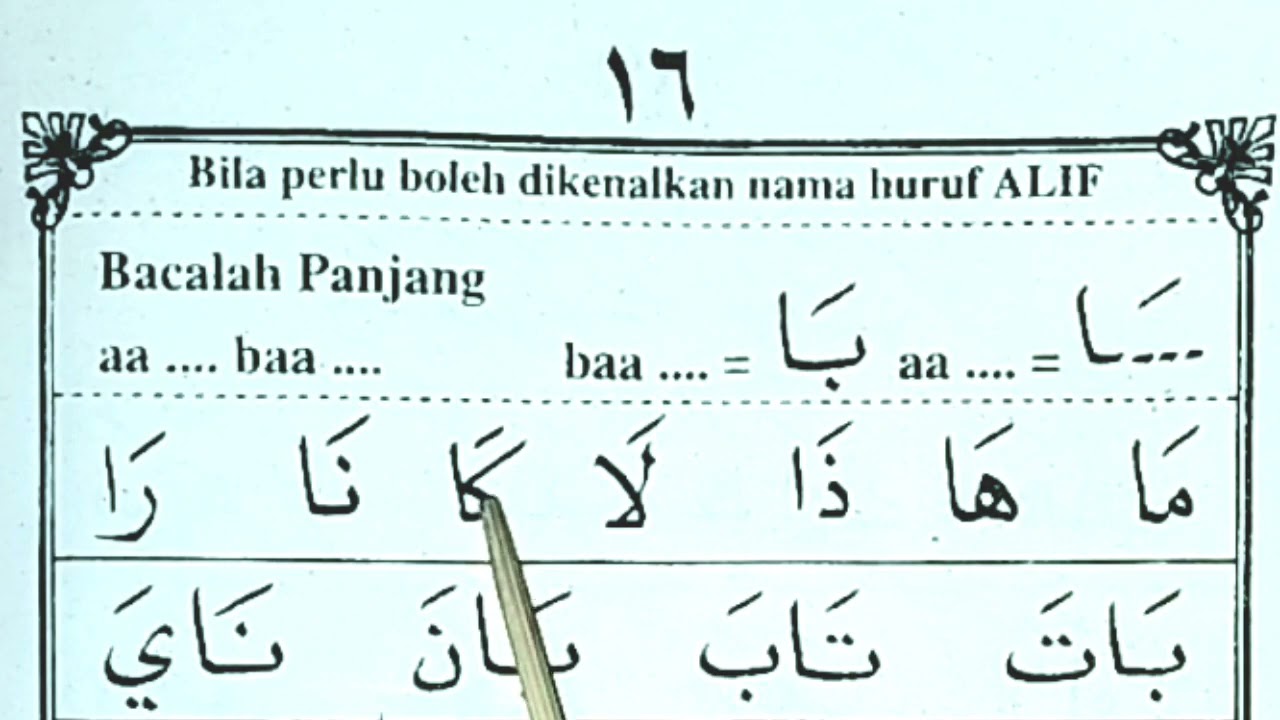 ١٦
Bila perlu boleh dikenalkan nama huruf ALIF
Bacalah Panjang
aa .... baa .... baa .... = بَا aa .... = ---ـَا
مَا هَا ذَا لَا كَا نَا رَا
بَاتَ تَابَ نَايَ